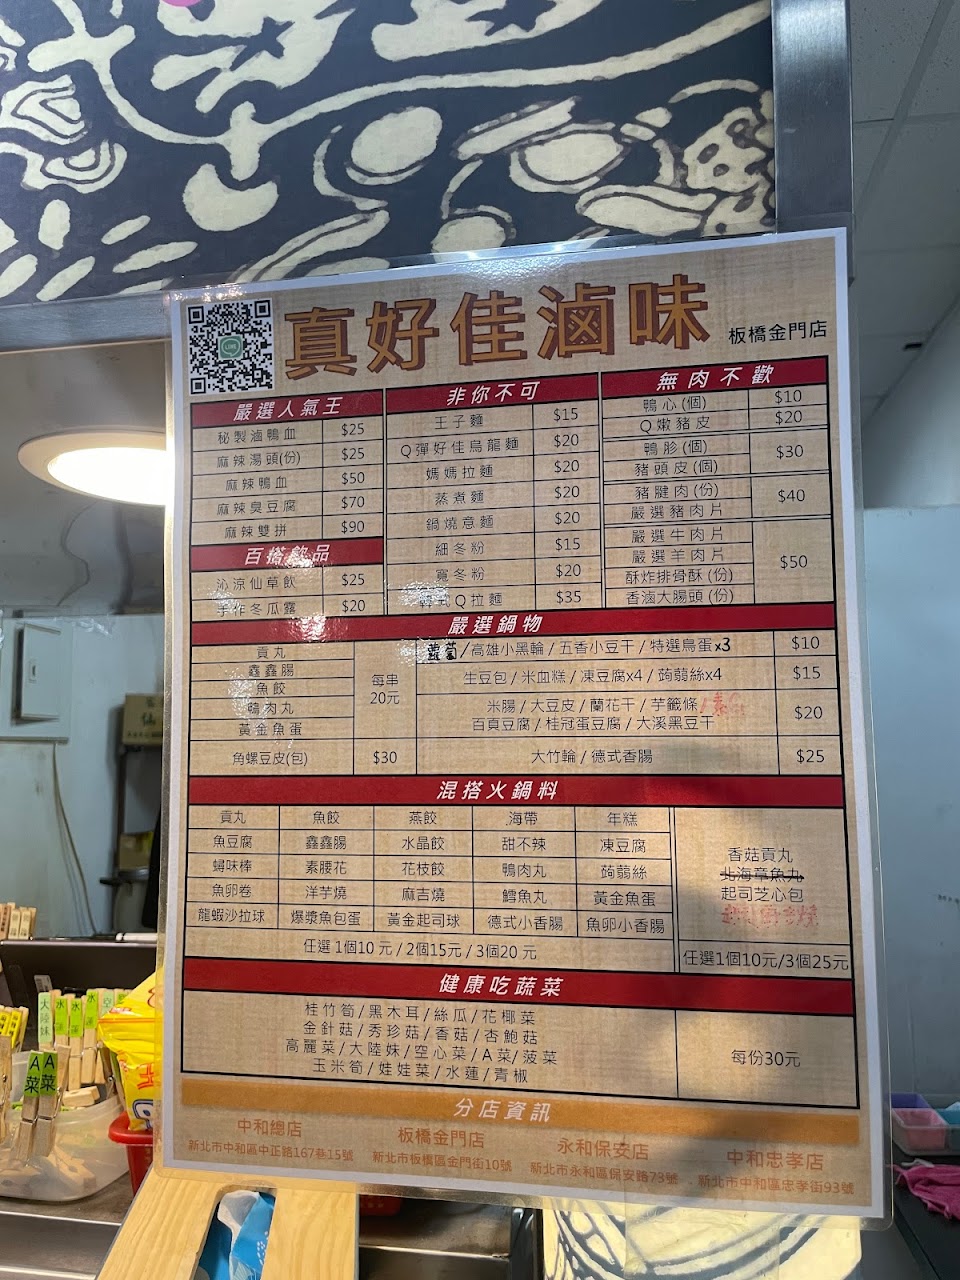 真好佳滷味
板橋金門店
LINE
嚴選人氣王
秘製滷鴨血 $25
麻辣湯頭(份) $25
麻辣鴨血 $50
麻辣臭豆腐 $70
麻辣雙拼 $90
百搭飲品
沁涼仙草飲 $25
手作冬瓜露 $20
非你不可
王子麵 $15
Q彈好佳烏龍麵 $20
媽媽拉麵 $20
蒸煮麵 $20
鍋燒意麵 $20
細冬粉 $15
寬冬粉 $20
韓式Q拉麵 $35
無肉不歡
鴨心(個) $10
Q嫩豬皮 $20
鴨胗(個)
豬頭皮(個)
$30
豬腱肉(份)
嚴選豬肉片
$40
嚴選牛肉片
嚴選羊肉片
酥炸排骨酥(份)
香滷大腸頭(份)
$50
嚴選鍋物
貢丸
鑫鑫腸
魚餃
鴨肉丸
黃金魚蛋
每串
20元
角螺豆皮(包) $30
蘿蔔/高雄小黑輪/五香小豆干/特選鳥蛋x3 $10
生豆包/米血糕/凍豆腐x4/蒟蒻絲x4 $15
米腸/大豆皮/蘭花干/芋籤條
百頁豆腐/桂冠蛋豆腐/大溪黑豆干
$20
大竹輪/德式香腸 $25
混搭火鍋料
貢丸 魚餃 燕餃 海帶 年糕
魚豆腐 鑫鑫腸 水晶餃 甜不辣 凍豆腐
蟳味棒 素腰花 花枝餃 鴨肉丸 蒟蒻絲
魚卵卷 洋芋燒 麻吉燒 鱈魚丸 黃金魚蛋
龍蝦沙拉球 爆漿魚包蛋 黃金起司球 德式小香腸 魚卵小香腸
任選1個10元/2個15元/3個20元
香菇貢丸
北海章魚丸
起司芝心包
任選1個10元/3個25元
健康吃蔬菜
桂竹筍/黑木耳/絲瓜/花椰菜
金針菇/秀珍菇/香菇/杏鮑菇
高麗菜/大陸妹/空心菜/A菜/菠菜
玉米筍/娃娃菜/水蓮/青椒
每份30元
分店資訊
中和總店
新北市中和區中正路167巷15號
板橋金門店
新北市板橋區金門街10號
永和保安店
新北市永和區保安路73號
中和忠孝店
新北市中和區忠孝街93號
大陸妹
水蓮
水蓮
A菜
A菜